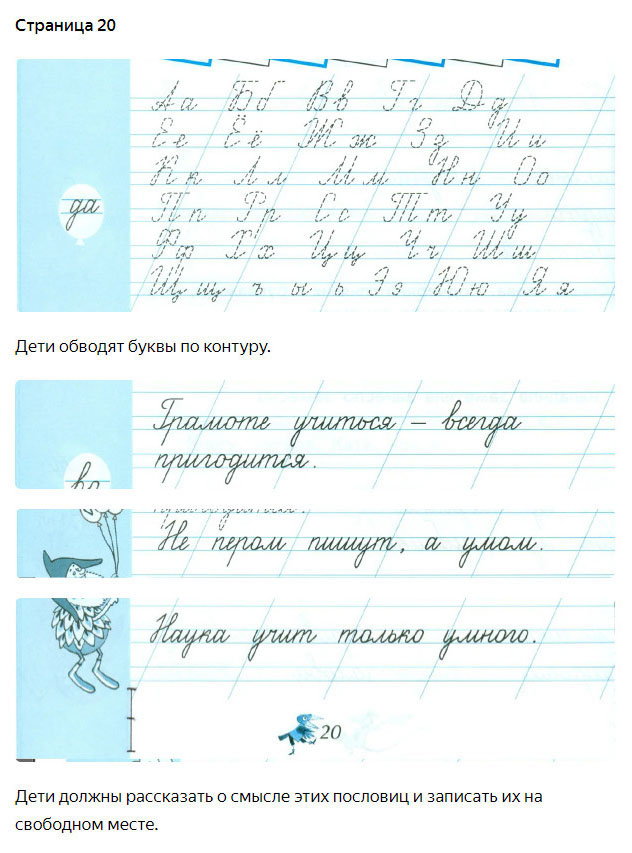 Страница 20
Аа Бб Вв Гг Дд
Ее Ёё Жж Зз Ии
да
Кк Лл Мм Нн Оо
Пп Рр Сс Тт Уу
Фф Хх Цц Чч Шш
Щщ ъ ы ь Ээ Юю Яя
Дети обводят буквы по контуру.
Грамоте учиться – всегда
пригодится.
Не пером пишут, а умом.
Наука учит только умного.
20
Дети должны рассказать о смысле этих пословиц и записать их на
свободном месте.